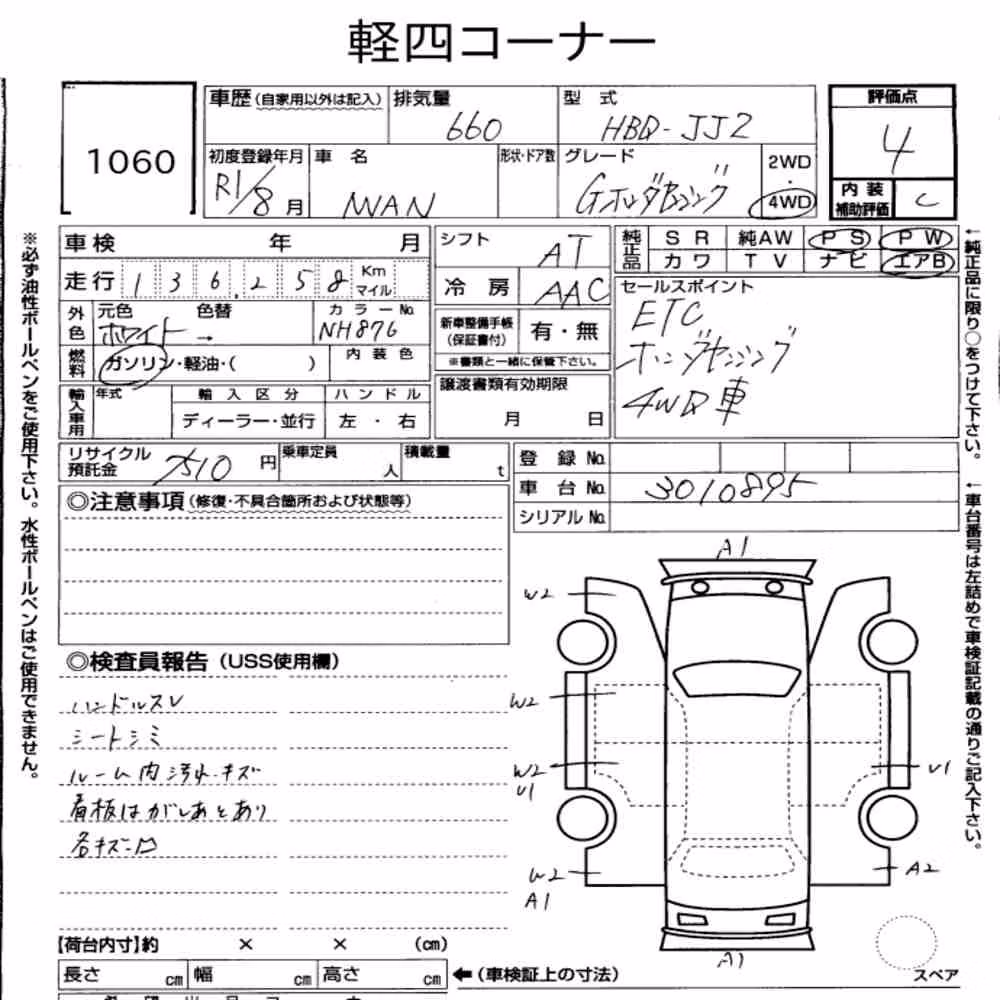 軽四コーナー
1060
車歴(自家用以外は記入) 排気量 型式
660 HBD-JJ2
初度登録年月 車名 形状・ドア数 グレード 2WD・4WD
R1/8月 NVAN Gホンダセンシング
評価点
4
内装補助評価 C
車検 年 月
走行 136,258 Km マイル
外色 元色 色替 カラーNo.
ホワイト → NH876
燃料 ガソリン・軽油・( ) 内装色
輸入車用 年式 輸入区分 ハンドル
ディーラー・並行 左・右
シフト AT
冷房 AAC
新車整備手帳(保証書付) 有・無
※書類と一緒に保管下さい。
譲渡書類有効期限
月 日
純正品 SR 純AW PS PW
カワ TV ナビ エアB
セールスポイント
ETC
ホンダセンシング
4WD車
リサイクル預託金 7510円 乗車定員 人 積載量 t
登録No.
車台No. 3010895
シリアルNo.
◎注意事項(修復・不具合箇所および状態等)
◎検査員報告(USS使用欄)
ハンドルスレ
シートシミ
ルーム内汚れ・キズ
看板はがしあとあり
各キズ凹
A1
W2
W2
W2
U1
U1
W2
A1
A2
A1
スペア
【荷台内寸】約 × × (cm)
長さ cm 幅 cm 高さ cm ←(車検証上の寸法)
※必ず油性ボールペンをご使用下さい。水性ボールペンはご使用できません。
←純正品に限り○をつけて下さい。
←車台番号は左詰めで車検証記載の通りご記入下さい。